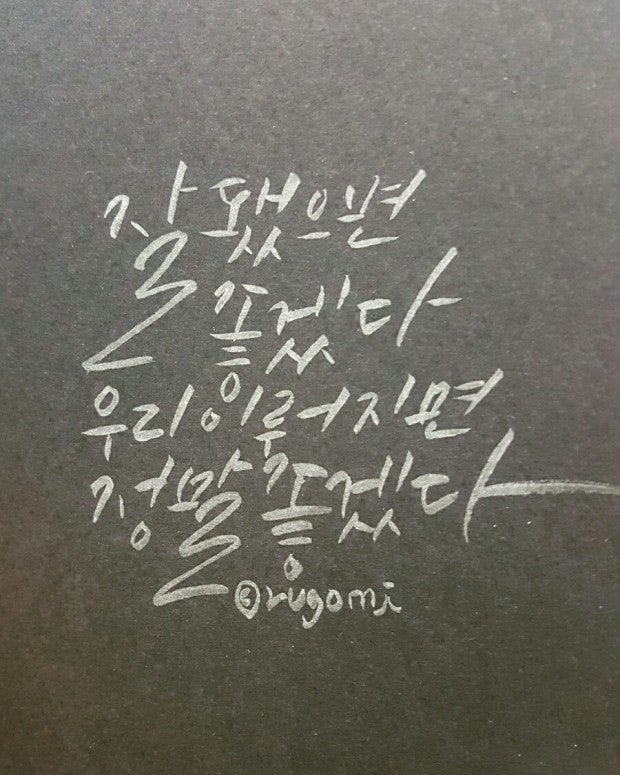 잘 됐으면
좋겠다
우리 이루어지면
정말 좋겠다
@rugomi